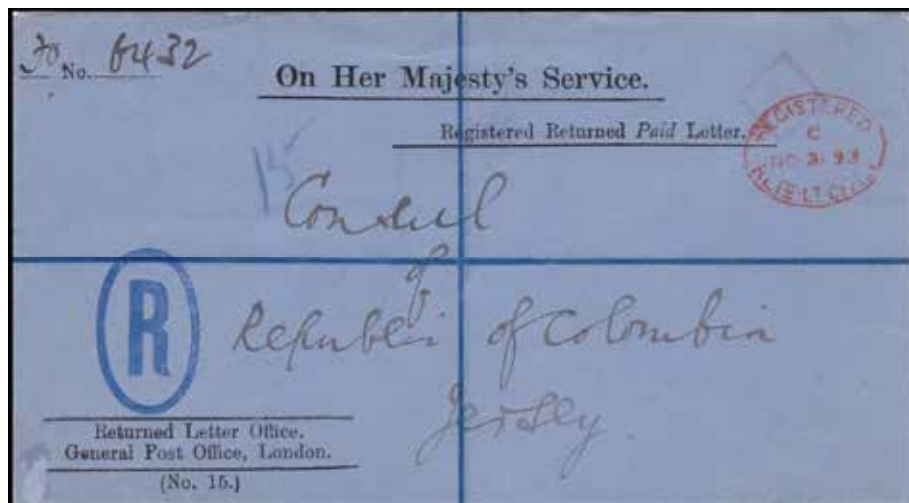 No. 6432
On Her Majesty's Service.
Registered Returned Paid Letter.
REGISTERED
C
93
15
Consul
of
Republic of Colombia
Jersey.
R
Returned Letter Office.
General Post Office, London.
(No. 15.)